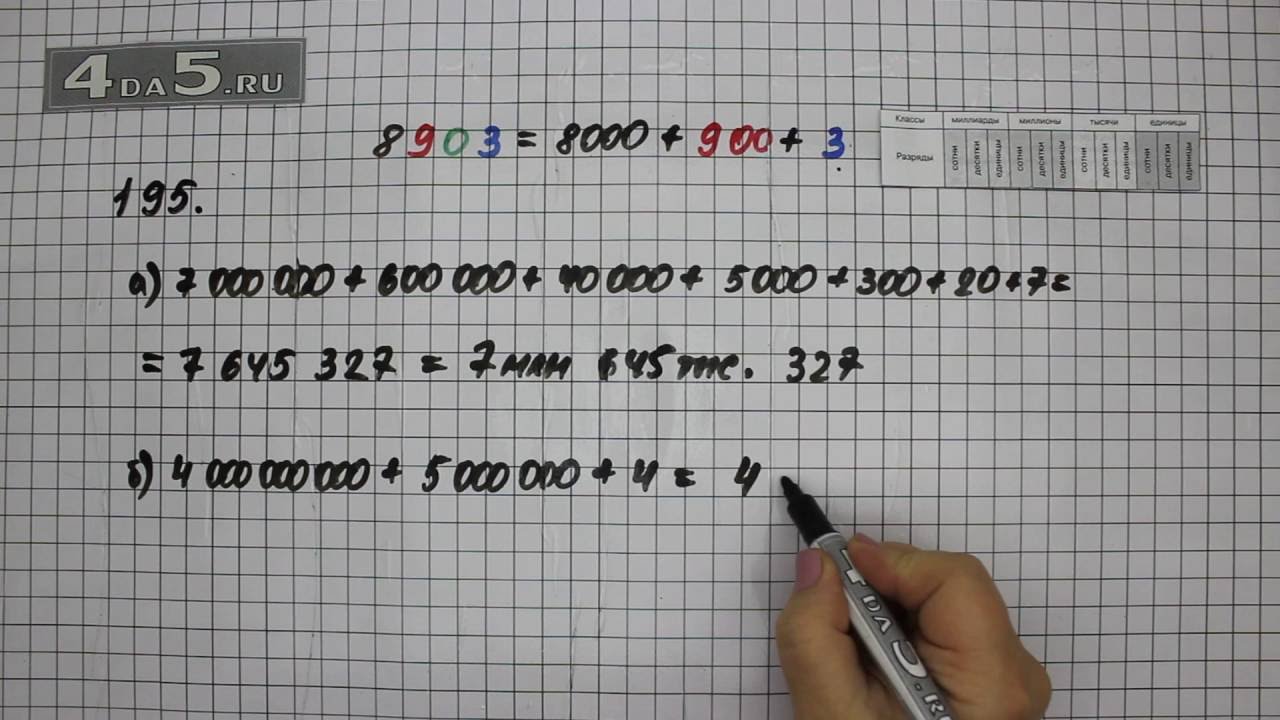 4DA5.RU
8903 = 8000 + 900 + 3.
Классы миллиарды миллионы тысячи единицы
Разряды сотни десятки единицы сотни десятки единицы сотни десятки единицы сотни десятки единицы
195.
а) 7 000 000 + 600 000 + 40 000 + 5 000 + 300 + 20 + 7 =
= 7 645 327 = 7 млн 645 тыс. 327
б) 4 000 000 000 + 5 000 000 + 4 = 4
4DA5.RU